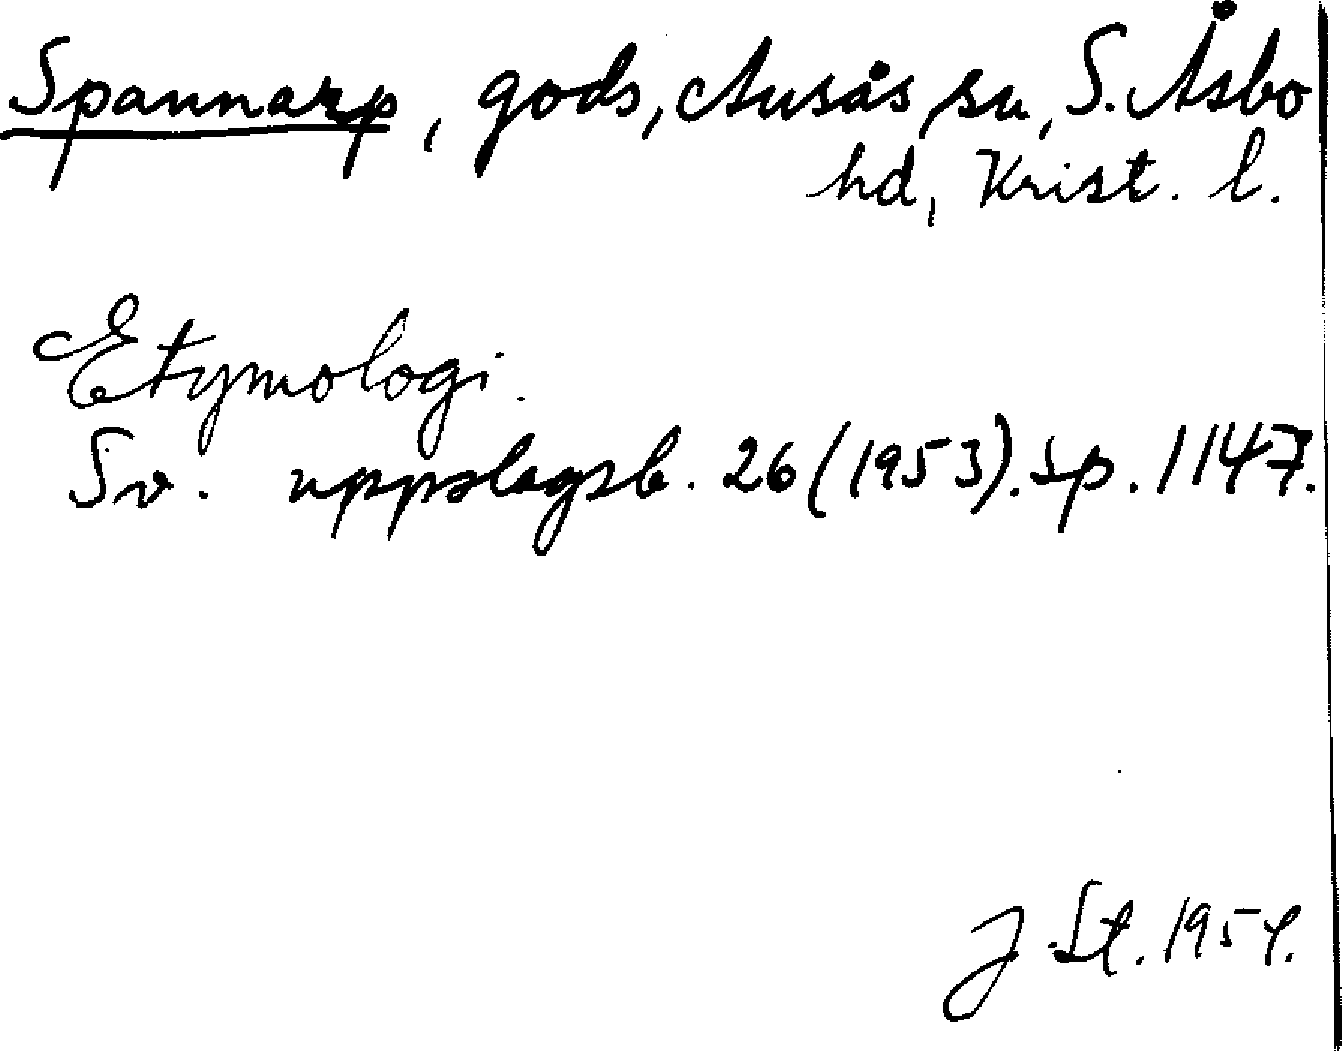 Spannarp, gods, Ausås sn, S. Åsbo
hd, Krist. l.
Etymologi.
Sv. uppslagsb. 26 (1953). sp. 1147.
J. St. 1954.